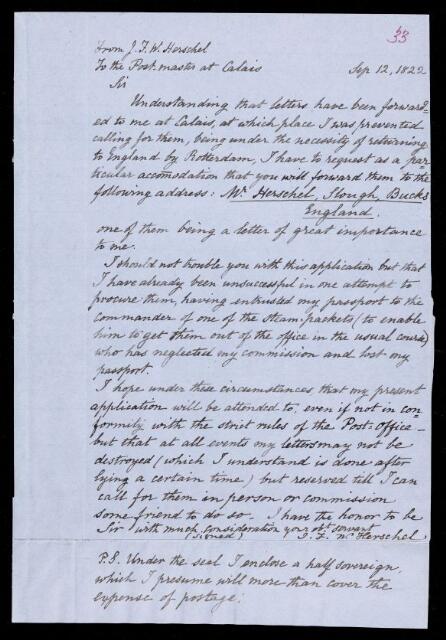 53
From J. F. W. Herschel
To the Post-master at Calais Sep 12, 1822
Sir
Understanding that letters have been forward-
ed to me at Calais, at which place I was prevented
calling for them, being under the necessity of returning
to England by Rotterdam, I have to request as a par-
ticular accomodation that you will forward them to the
following address: Mr. Herschel, Slough, Bucks
England.
one of them being a letter of great importance
to me.
I should not trouble you with this application but that
I have already been unsuccessful in one attempt to
procure them, having entrusted my passport to the
commander of one of the Steam-packets (to enable
him to get them out of the office in the usual course)
who has neglected my commission and lost my
passport.
I hope under these circumstances that my present
application will be attended to, even if not in con-
formity with the strict rules of the Post-Office -
but that at all events my letters may not be
destroyed (which I understand is done after
lying a certain time) but reserved till I can
call for them in person or commission
some friend to do so. I have the honor to be
Sir with much consideration your obt servant
(signed) J. F. W. Herschel.
P.S. Under the seal I enclose a half sovereign,
which I presume will more than cover the
expense of postage.